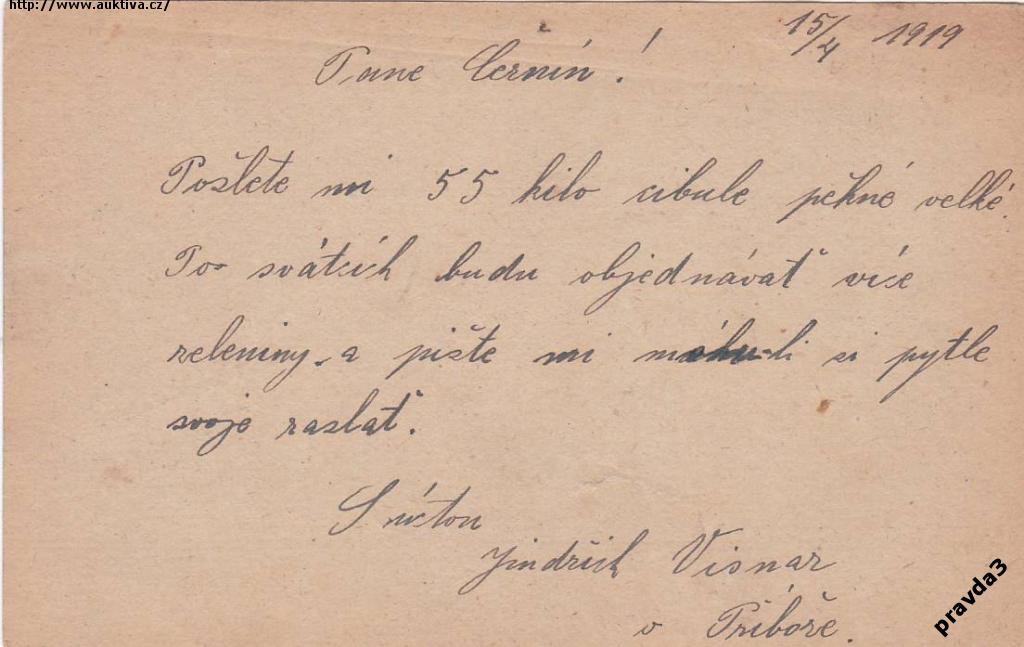 http://www.auktiva.cz/
15/4 1919
Pane Černín!
Pošlete mi 55 kilo cibule pěkné velké.
Po svátcích budu objednávať více
zeleniny, a pište mi mohu-li si pytle
svoje zaslať.
S úctou
Jindřich Visnar
v Příboře.
pravda3